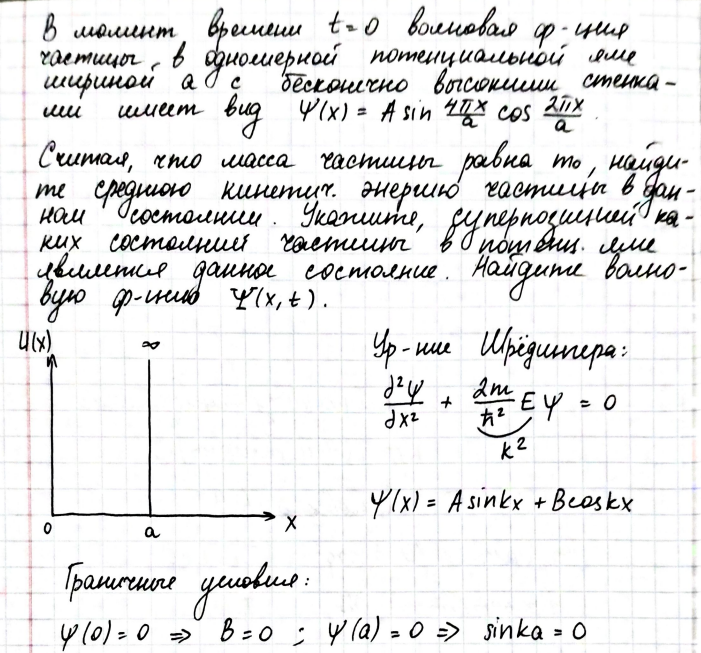 В момент времени t=0 волновая ф-ция
частицы в одномерной потенциальной яме
шириной a с бесконечно высокими стенка-
ми имеет вид Ψ(x) = A sin 4πx/a cos 2πx/a.
Считая, что масса частицы равна m₀, найди-
те среднюю кинетич. энергию частицы в дан-
ном состоянии. Укажите, суперпозицией ка-
ких состояний частицы в потенц. яме
является данное состояние. Найдите волно-
вую ф-цию Ψ(x,t).
U(x)
∞
0
a
x
Ур-ние Шрёдингера:
∂²Ψ/∂x² + 2m/ħ² E Ψ = 0
k²
Ψ(x) = A sin kx + B cos kx
Граничные условия:
Ψ(0) = 0 ⇒ B = 0 ; Ψ(a) = 0 ⇒ sin ka = 0